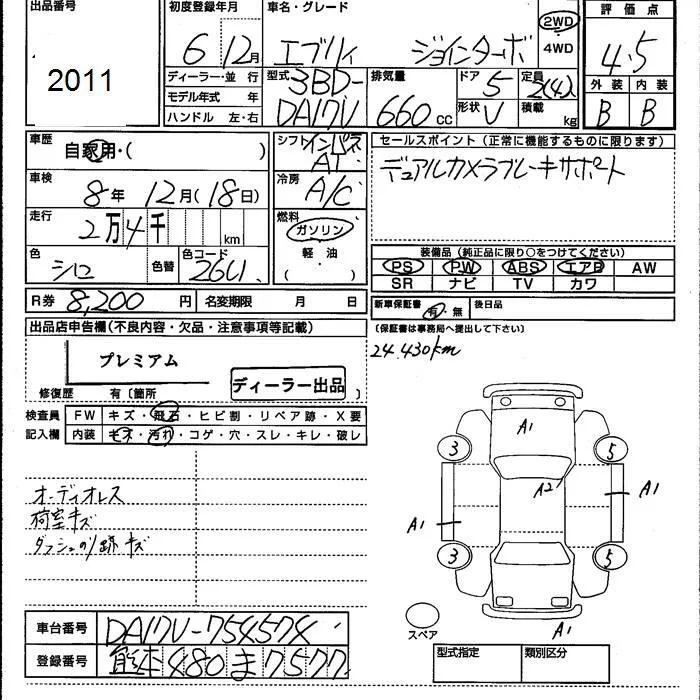 出品番号 初度登録年月 車名・グレード 評価点
2011 6年 12月 エブリイ ジョインターボ 2WD ・ 4WD 4.5
ディーラー・並行 型式 排気量 ドア 定員 外装 内装
モデル年式 年 3BD-DA17V 660cc 5 2(4) B B
ハンドル 左・右 形状 V 積載 kg
車歴 自家用・( ) シフト インパネAT セールスポイント(正常に機能するものに限ります)
車検 8年 12月(18日) 冷房 A/C デュアルカメラブレーキサポート
走行 2万4千 km 燃料 ガソリン・軽・油 ( )
色 シロ 色替 色コード 26U
装備品(純正品に限り○をつけてください)
PS PW ABS エアB AW
SR ナビ TV カワ
R券 8,200円 名変期限 月 日 新車保証書 有・無 後日品
(保証書は事務局へ提出して下さい)
出品店申告欄(不良内容・欠品・注意事項等記載) 24.430km
プレミアム
ディーラー出品
修復歴 有〔箇所 〕
検査員記入欄 FW キズ・飛石・ヒビ割・リペア跡・X要
内装 キズ・汚れ・コゲ・穴・スレ・キレ・破レ
オーディオレス
荷室キズ
ダッシュのり跡 キズ
A1
3 5
A2
A1 A1
3 5
スペア A1
車台番号 DA17V-754574
登録番号 熊本 480 ま 7577
型式指定 類別区分